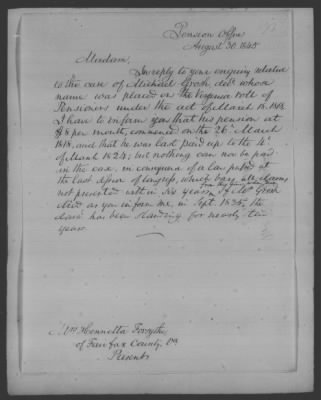 Pension Office
August 30. 1845
Madam,
In reply to your enquiry relative
to the case of Michael Grosh, decd. whose
name was placed on the Virginia roll of
Pensioners under the act of March 18. 1818.
I have to inform you that his pension at
$8 per month, commenced on the 26th March
1818, and that he was last paid up to the 4th
of March 1824; but nothing can now be paid
in the case, in consequence of a law passed at
the last session of Congress, which bars all claims
not presented within six years from the
If Mr. Grosh
died as you inform me, in Sept. 1835, the
claim has been standing for nearly ten
years.
Mrs Henrietta Forsythe,
of Fairfax County, Va
Present